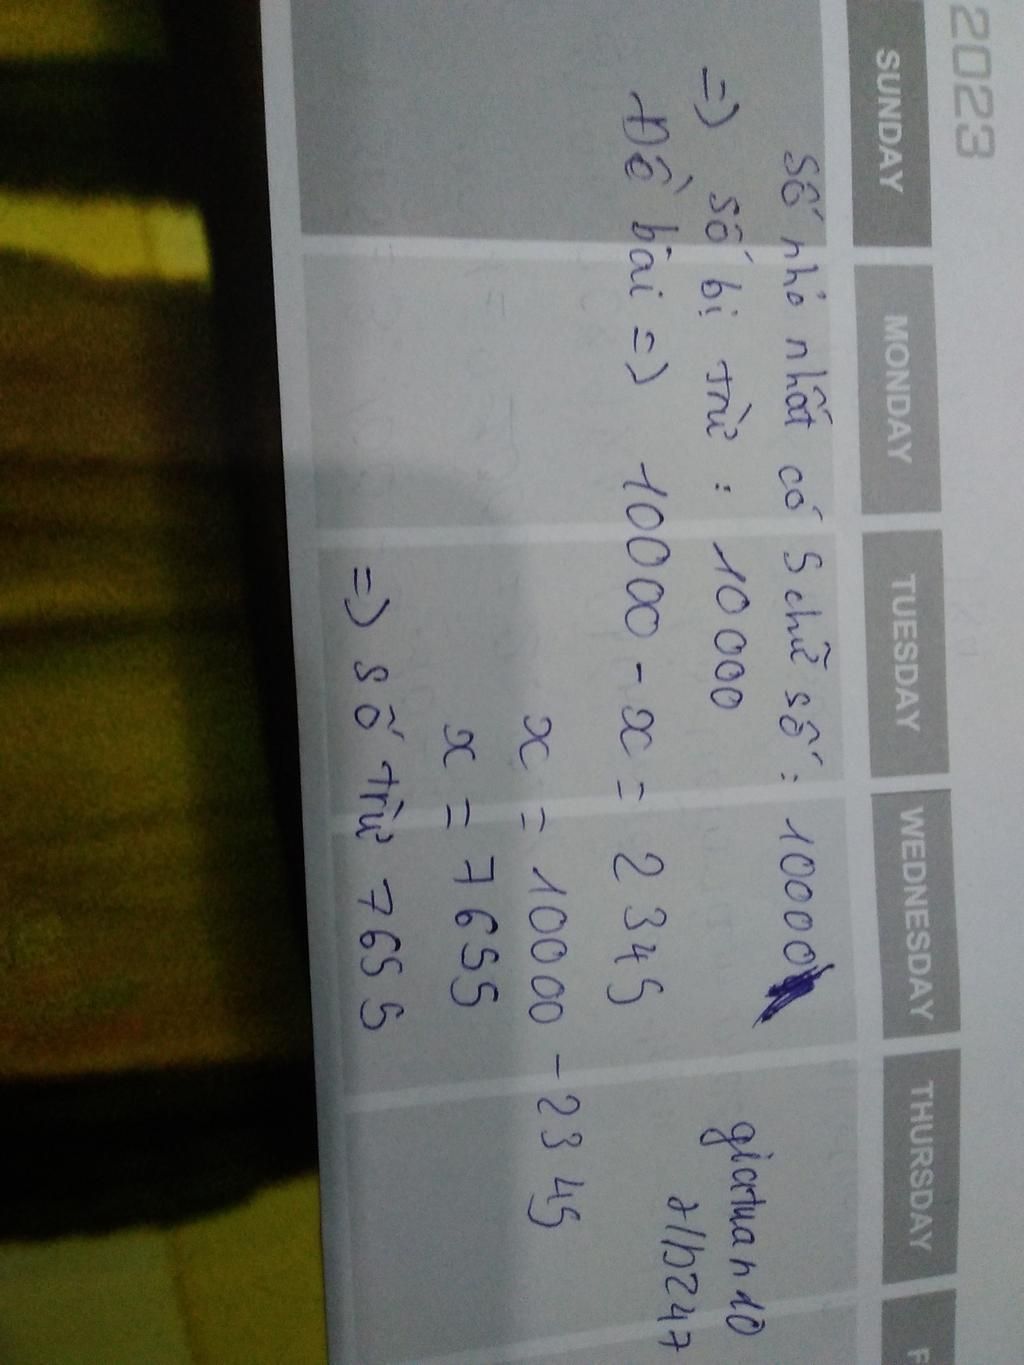 2023
SUNDAY MONDAY TUESDAY WEDNESDAY THURSDAY F
Số nhỏ nhất có 5 chữ số: 10000
=) số bị trừ: 10 000
Đề bài =) 10000 - x = 2345
x = 10000 - 2345
x = 7655
=) số trừ 7655
giatuan10